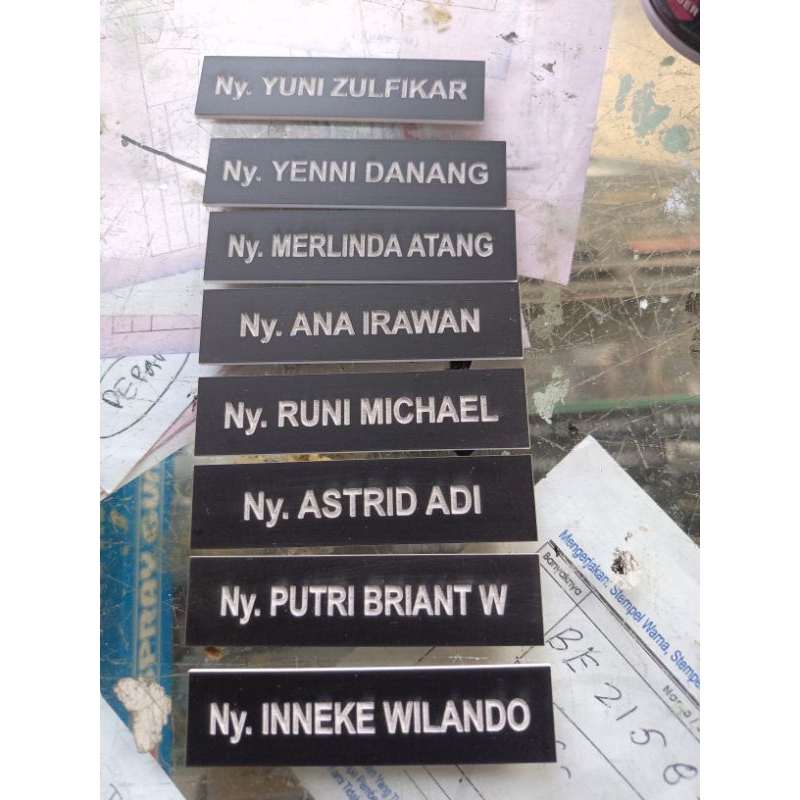 Ny. YUNI ZULFIKAR
Ny. YENNI DANANG
Ny. MERLINDA ATANG
Ny. ANA IRAWAN
Ny. RUNI MICHAEL
Ny. ASTRID ADI
Ny. PUTRI BRIANT W
Ny. INNEKE WILANDO
SPRAY GUN
Mengerjakan: Stempel Warna, Stempel
Banyaknya
BE 2158